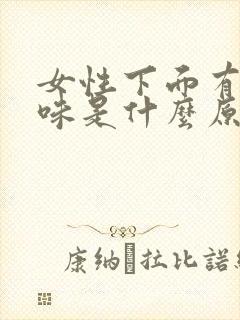 女性下而有
味是什麼原
康納 拉比諾